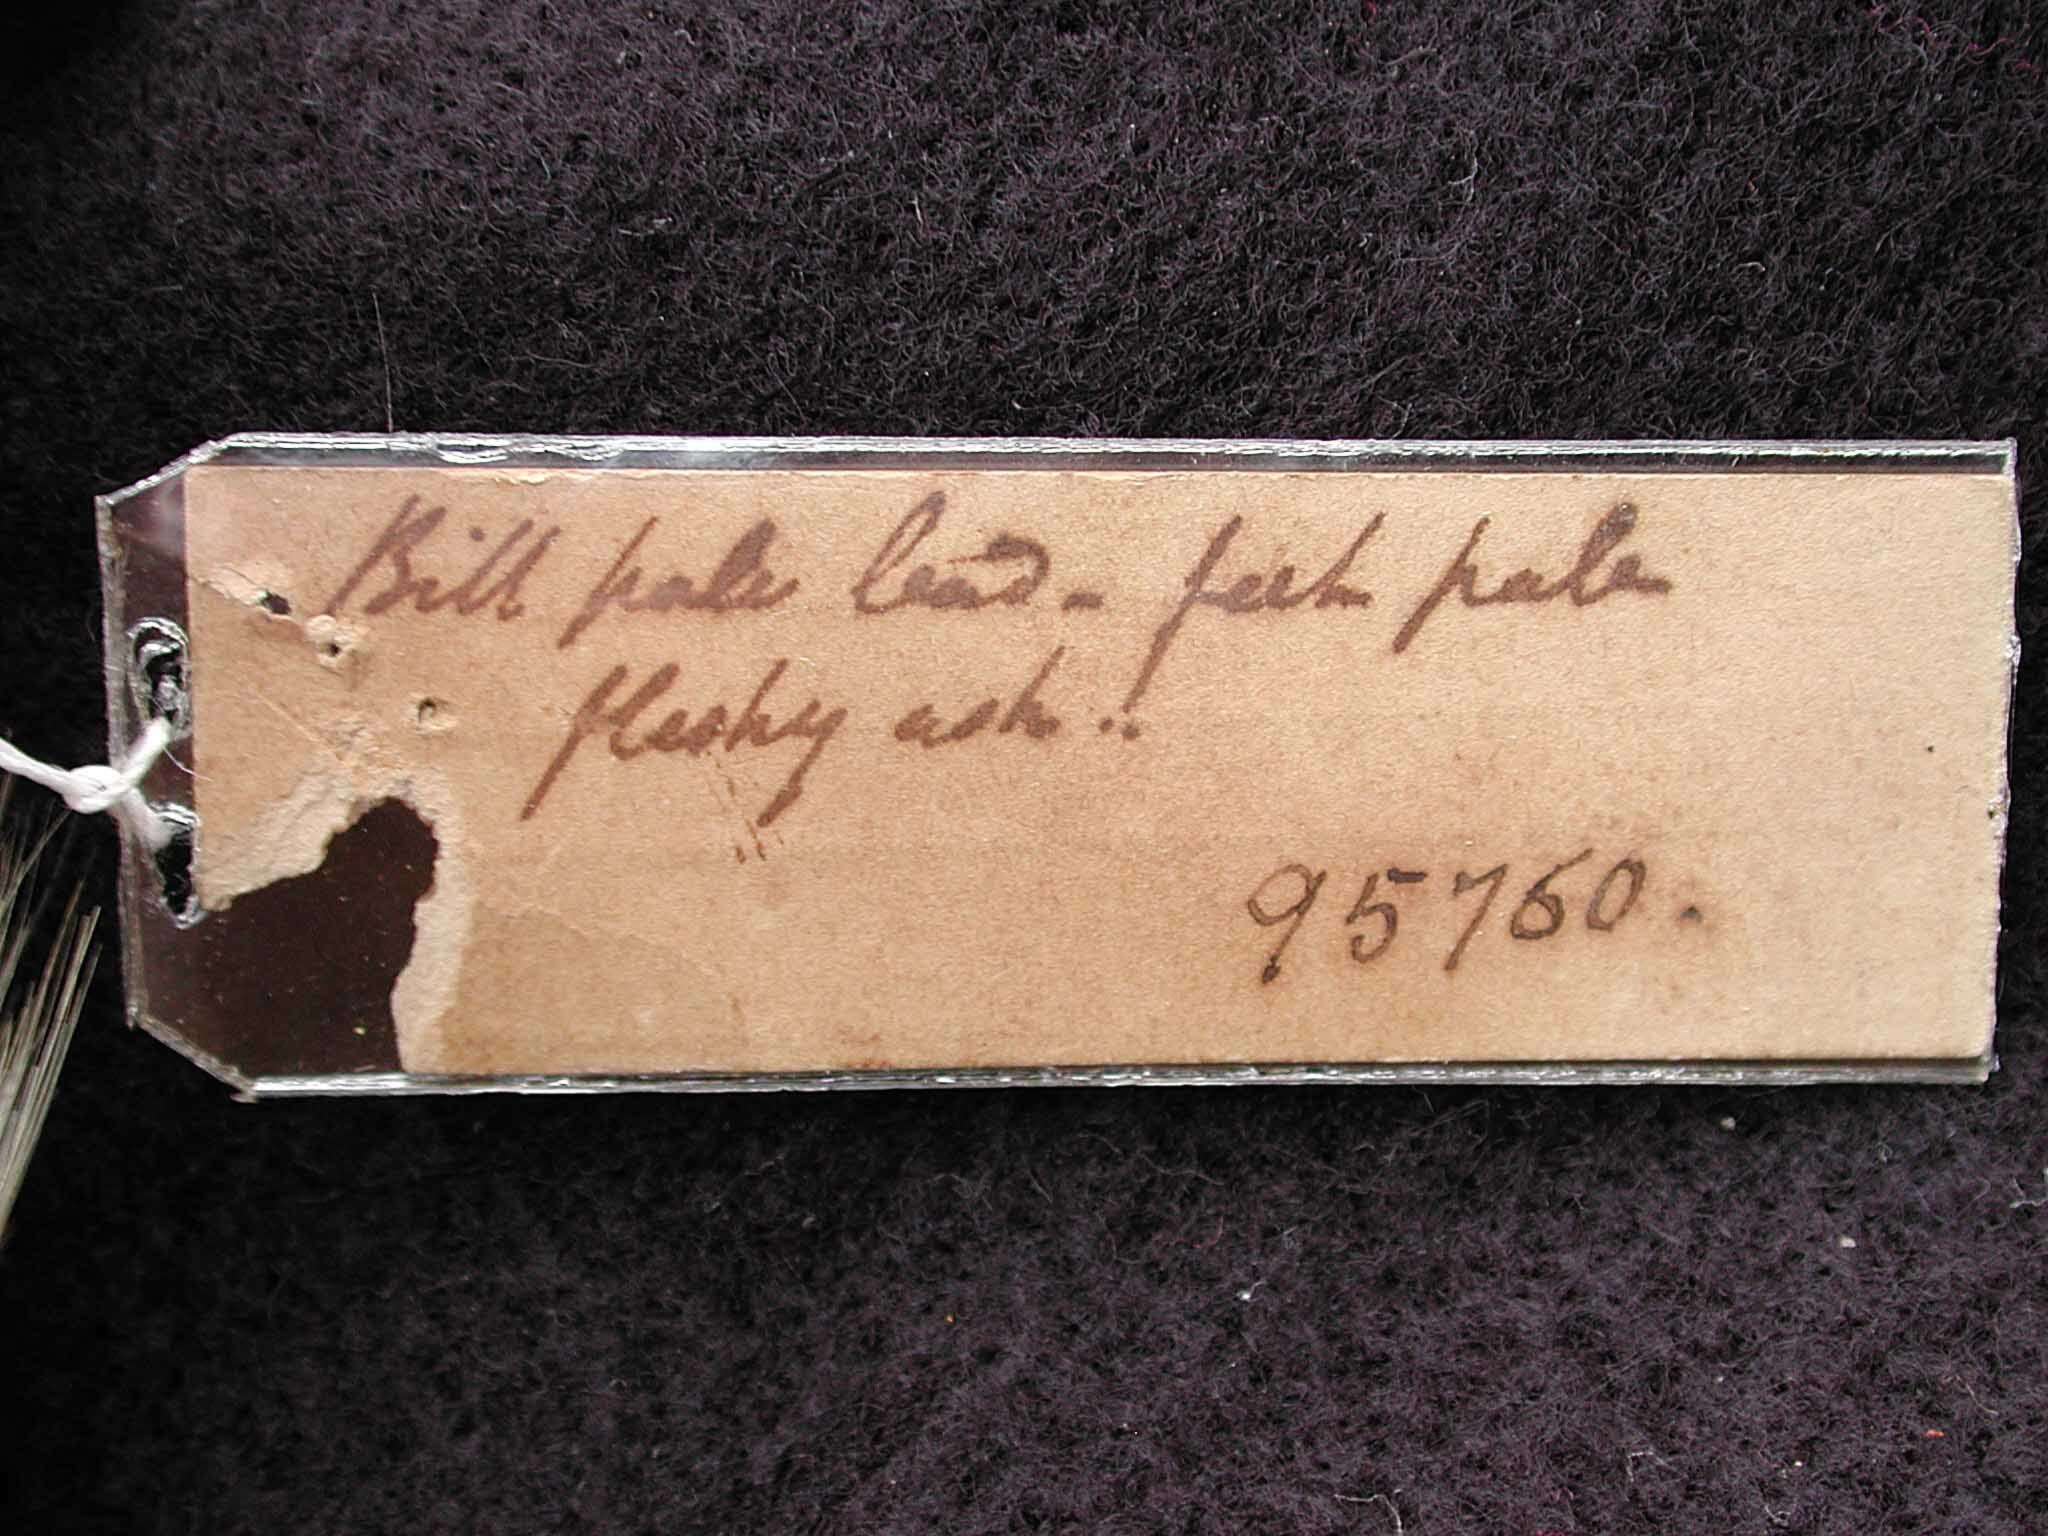 Bill pale lead - feet pale
fleshy ash..
95760.